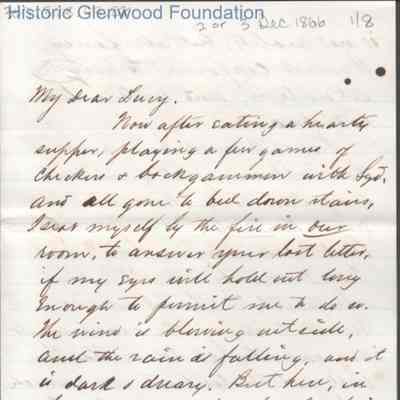 Historic Glenwood Foundation
2 or 3 Dec 1866 1/8
My dear Lucy.
Now after eating a hearty
supper, playing a few games of
checkers & backgammon with Syd,
and all gone to bed down stairs,
I seat myself by the fire in our
room, to answer your last letter,
if my eyes will hold out long
enough to permit me to do so.
The wind is blowing outside,
and the rain is falling, and it
is dark & dreary. But here, in